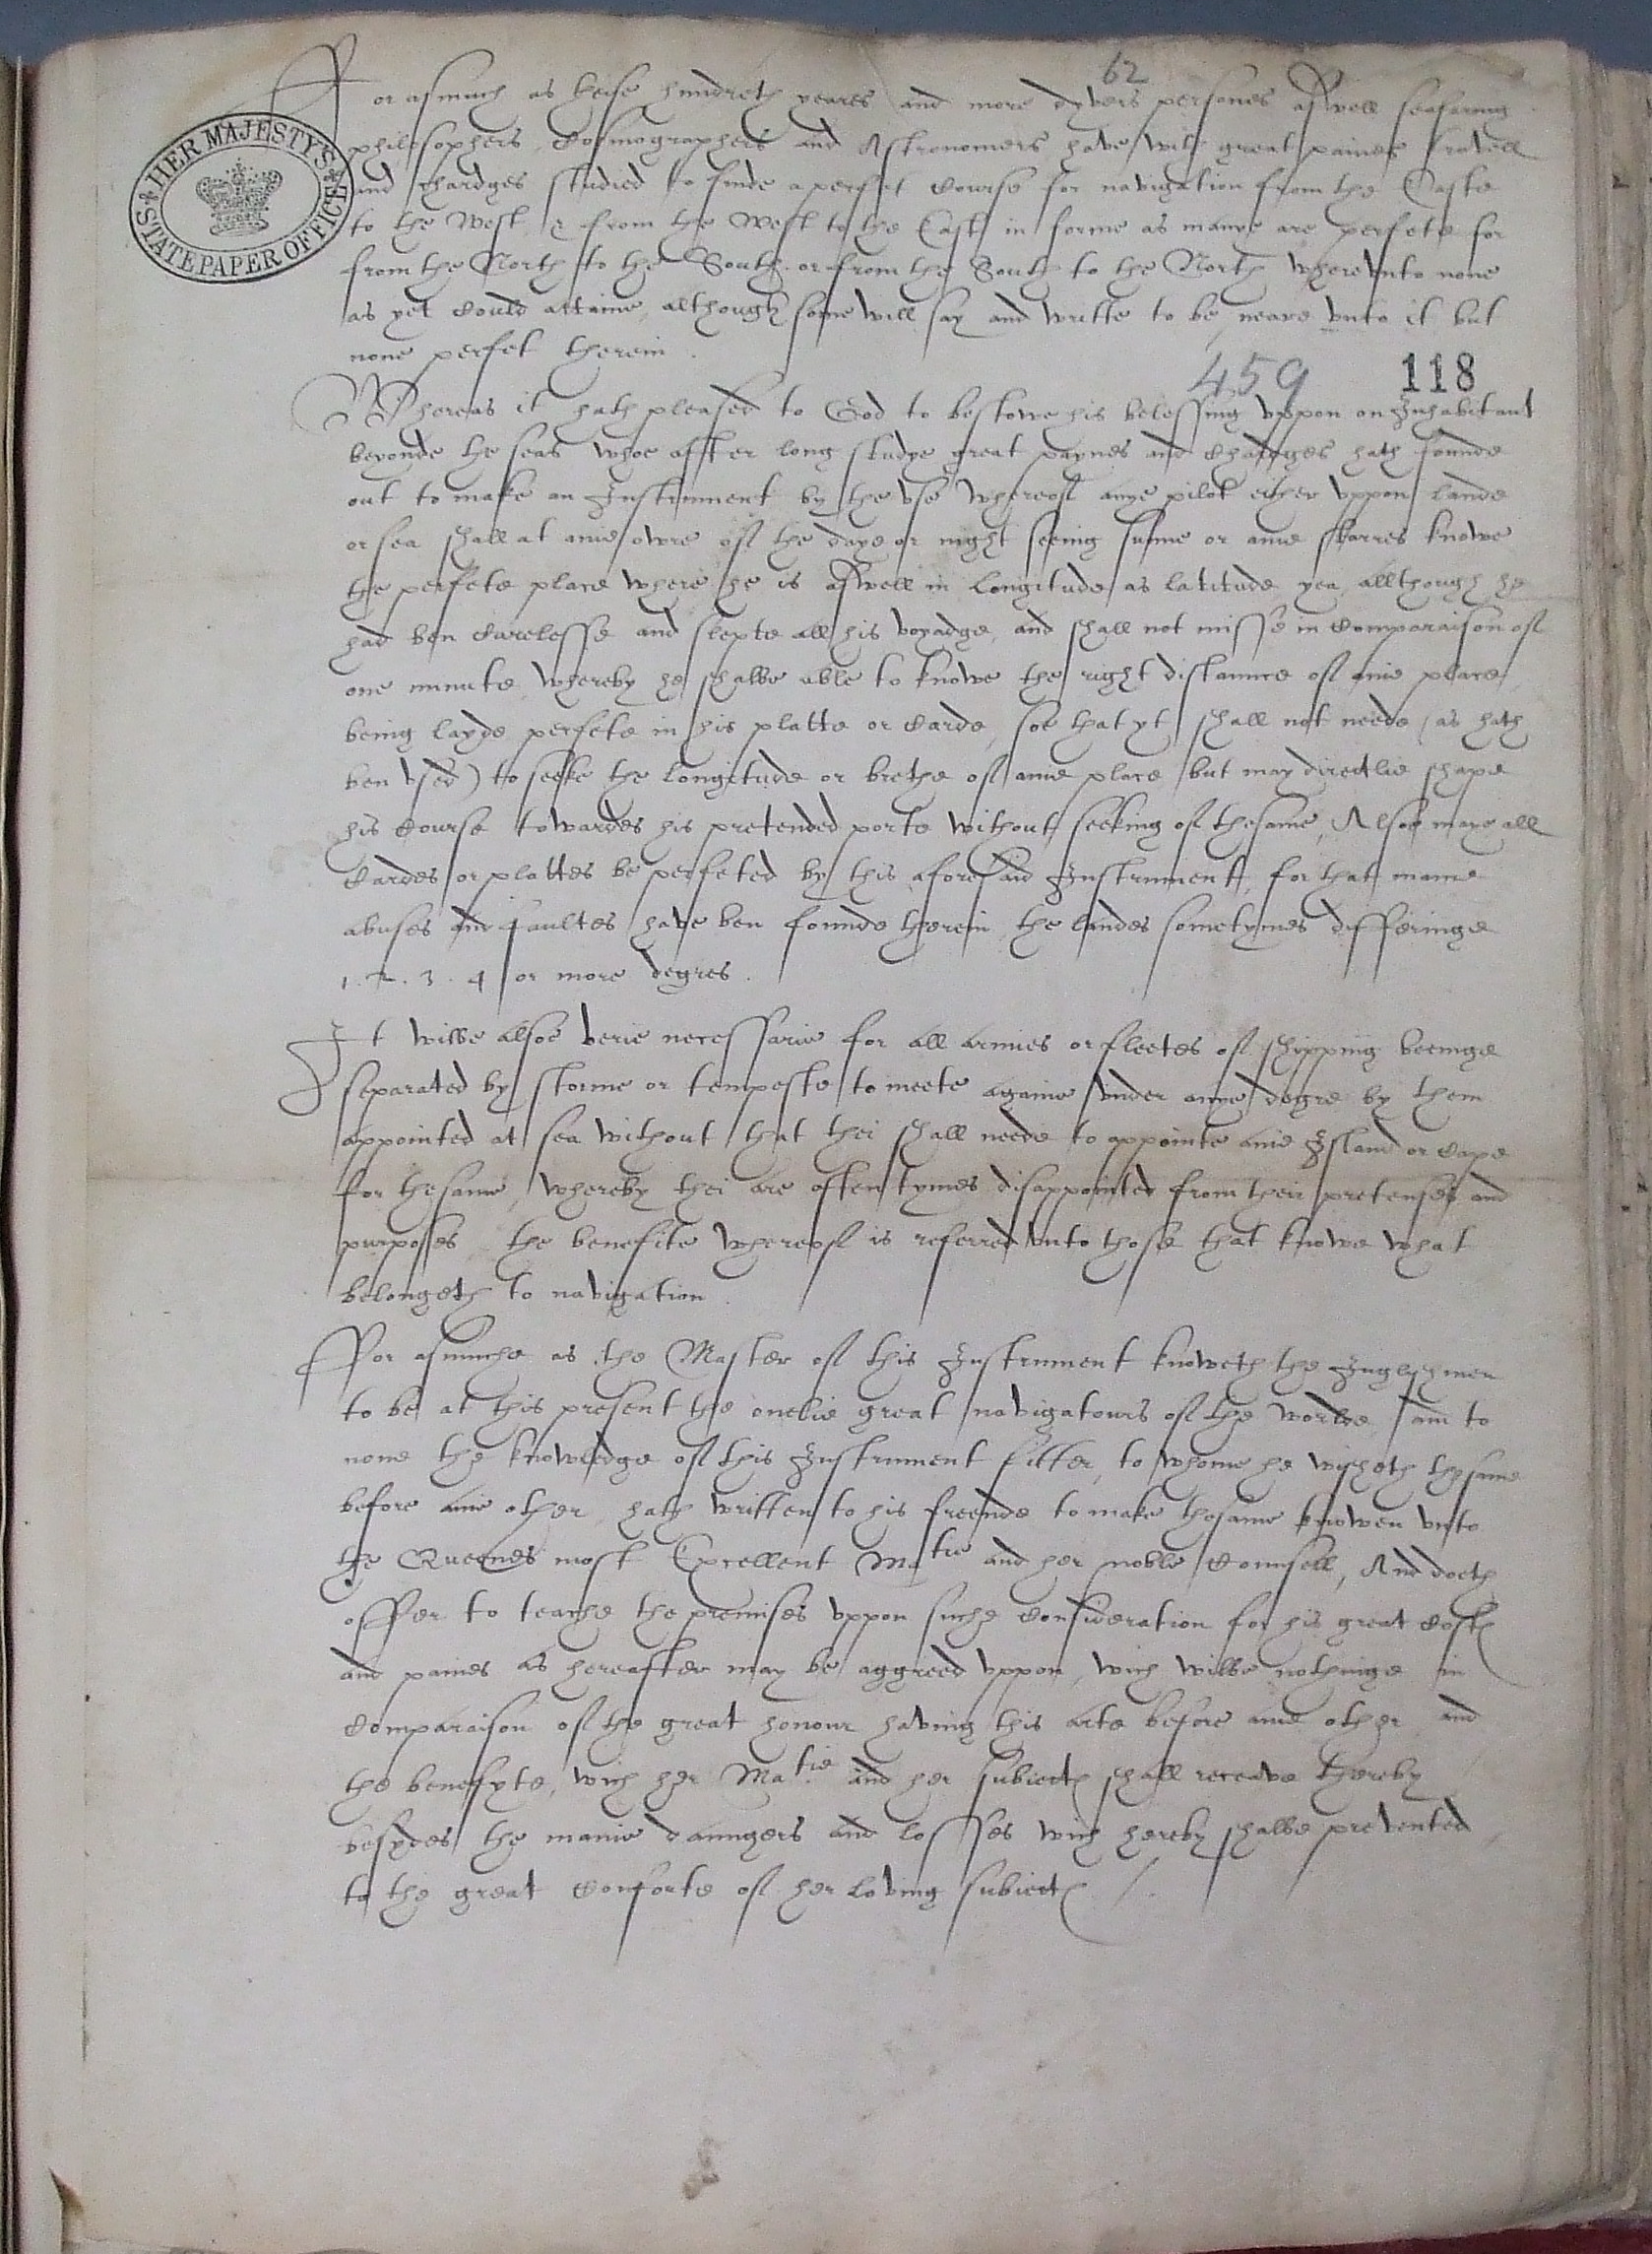 62
For asmuch as theise hundreth yeares and more dyvers persones aswell seafaring
philosophers, Cosmographers and Astronomers have with great paines travell
and chardges studied to finde a perfet course for navigation from the Easte
to the West & from the West to the East in forme as manye are perfete for
from the North to the South or from the South to the North whereunto none
as yet could attaine, although some will say and writte to be neare unto it but
none perfet therein.
459 118
Whereas it hath pleased to God to bestowe his belessing uppon on Inhabitant
beyonde the seas whoe affter long studye great paynes and chardges hath founde
out to make an Instrument by the use whereof anye pilot either uppon lande
or sea shall at anie owre of the daye or night seeing sunne or anie starres knowe
the perfete place where he is aswell in Longitude as latitude yea, allthough he
had ben carelesse and slepte all his voyadge, and shall not misse in Comparaison of
one minute, whereby he shalbe able to knowe the right distaunce of anie place,
being layde perfete in his platte or Carde, soe that yt shall not neede (as hath
ben used) to seeke the longitude or brethe of anie place but may directlie shape
his Course towardes his pretended porte without seeking of thesame, Alsoe maye all
Cardes or plattes be perfeted by this aforesaid Instrument, for that manie
abuses and faultes have ben founde therein the landes sometymes differinge
1. 2. 3. 4 or more degres.
It wilbe alsoe verie necessarie for all armies or fleetes of shipping beeinge
separated by storme or tempeste to meete againe under anye degre by them
appointed at sea without that thei shall neede to appointe anie Island or Cape
for thesame, whereby thei are often tymes disappointed from their pretenses and
purposes, the benefite whereof is referred unto those that knowe what
belongeth to navigation.
For asmuche as the Master of this Instrument knoweth the Inglishmen
to be at this present the onelie great navigatours of the worlde and to
none the knowledge of this Instrument fitter, to whome he wisheth thesame
before anie other, hath written to his freende to make thesame knowen unto
the Queenes most Excellent Matie and her noble Counsell, And doeth
offer to teache the premises uppon suche Consideration for his great Costes
and paines as hereafter may be aggreed uppon, wich wilbe nothinge in
Comparaison of the great honour having this arte before anie other and
the benefyte, wich her Matie and her subiectes shall receave thereby
besydes the manie daungers and losses wich hereby shalbe prevented,
to the great Conforte of her loving subiectes /.
HER MAJESTY'S STATE PAPER OFFICE